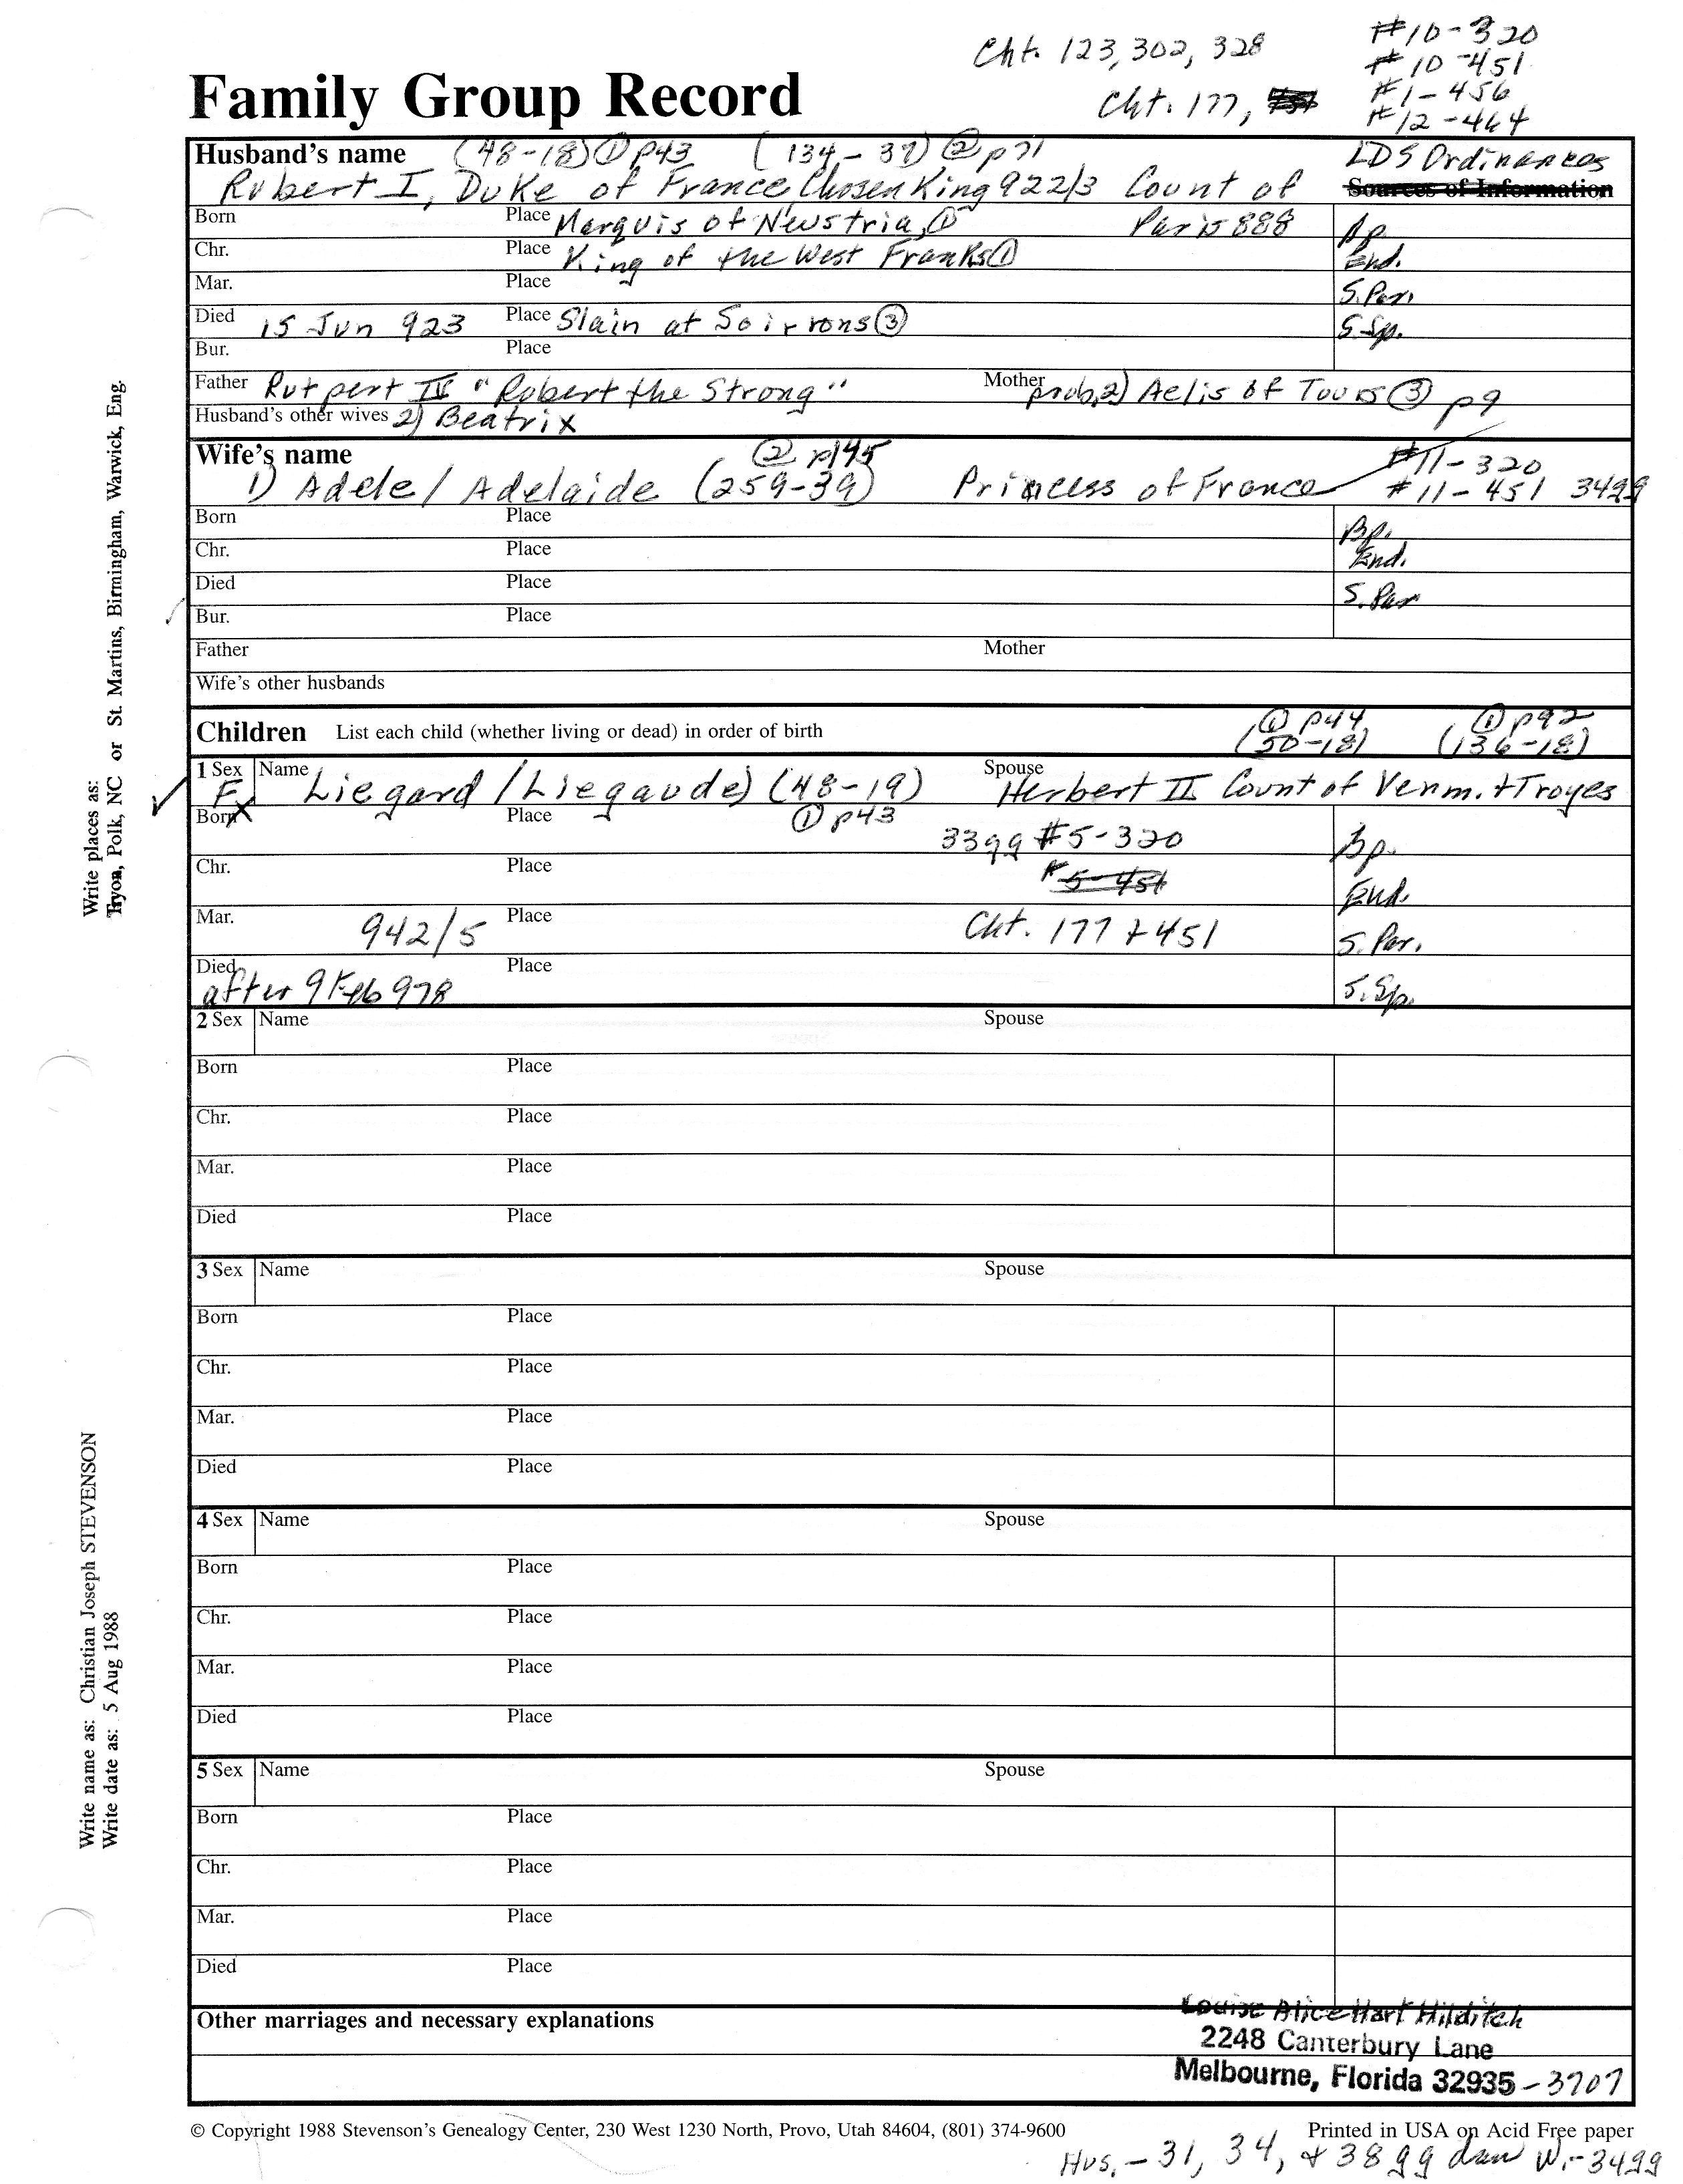 Cht. 123, 302, 328
#10-320
#10-451
#1-456
#12-464
Family Group Record
Cht. 177,
Husband's name (48-18) ① p43 (134-37) ② p71 LDS Ordinances
Robert I, Duke of France Chosen King 922/3 Count of Sources of Information
Born Place Marquis of Neustria, ① Paris 888 Bp.
Chr. Place King of the West Franks ① End.
Mar. Place S. Par.
Died 15 Jun 923 Place Slain at Soirrons ③ S. Sp.
Bur. Place
Father Rutpert IV "Robert the Strong" Mother prob. 2) Aelis of Tours ③ p9
Husband's other wives 2) Beatrix
Wife's name ② p145 #11-320
1) Adele / Adelaide (259-39) Princess of France #11-451 34gg
Born Place Bp.
Chr. Place End.
Died Place S. Par
Bur. Place
Father Mother
Wife's other husbands
Children List each child (whether living or dead) in order of birth
① p44 ① p92
(50-18) (136-18)
1 Sex Name Spouse
F Liegard / Liegaude) (48-19) Herbert II Count of Verm. + Troyes
Born X Place ① p43 33gg #5-320 Bp.
Chr. Place # 5-451 End.
Mar. 942/5 Place Cht. 177 + 451 S. Par.
Died after 9 Feb 978 Place S. Sp.
2 Sex Name Spouse
Born Place
Chr. Place
Mar. Place
Died Place
3 Sex Name Spouse
Born Place
Chr. Place
Mar. Place
Died Place
4 Sex Name Spouse
Born Place
Chr. Place
Mar. Place
Died Place
5 Sex Name Spouse
Born Place
Chr. Place
Mar. Place
Died Place
Other marriages and necessary explanations
Louise Alice Hart Hilditch
2248 Canterbury Lane
Melbourne, Florida 32935-3707
© Copyright 1988 Stevenson's Genealogy Center, 230 West 1230 North, Provo, Utah 84604, (801) 374-9600 Printed in USA on Acid Free paper
Hus. - 31, 34, + 38 gg dau W.- 34gg
Write places as:
Tryon, Polk, NC or St. Martins, Birmingham, Warwick, Eng.
Write name as: Christian Joseph STEVENSON
Write date as: 5 Aug 1988